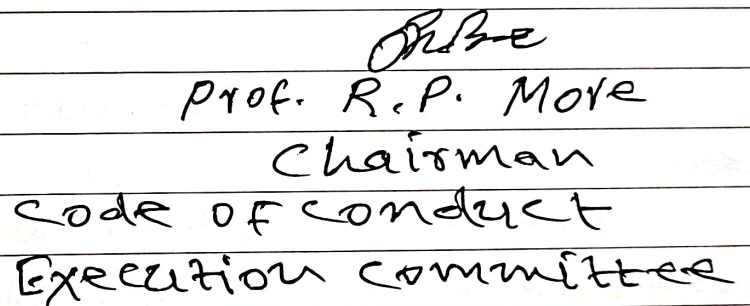 Prof. R.P. More
Chairman
Code of conduct
Execution committee